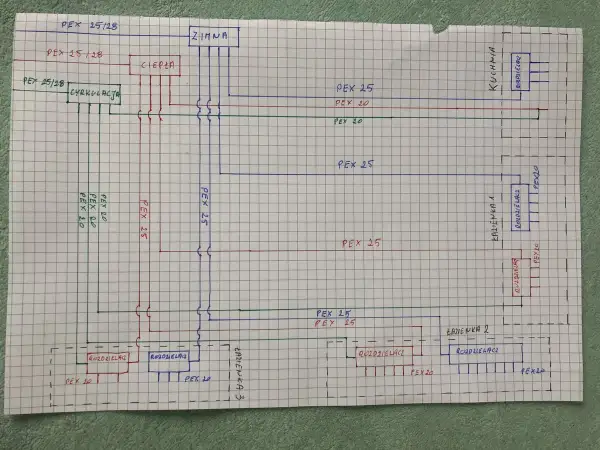 PEX 25/28
ZIMNA
PEX 25/28
CIEPŁA
PEX 25/28
CYRKULACJA
KUCHNIA
ROZDZIELACZ
PEX 25
PEX 20
PEX 20
PEX 25
ŁAZIENKA 1
ROZDZIELACZ
PEX20
PEX 20
PEX 20
PEX 20
PEX 25
PEX 25
PEX 25
ROZDZIELACZ
PEX20
PEX 25
PEX 25
ŁAZIENKA 2
ROZDZIELACZ
PEX 20
ROZDZIELACZ
PEX 20
ŁAZIENKA 3
ROZDZIELACZ
PEX20
ROZDZIELACZ
PEX20